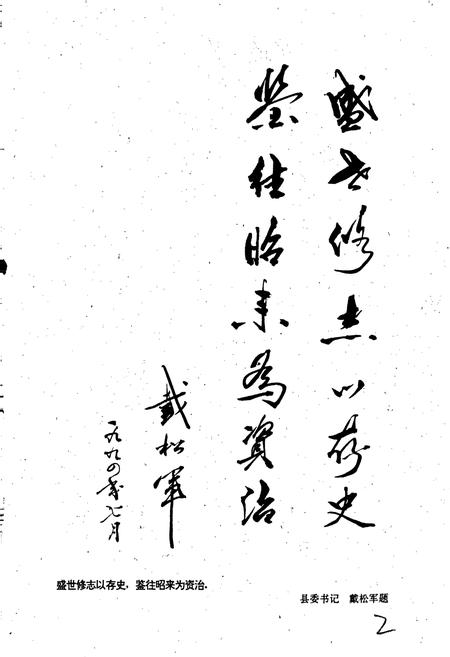 盛世修志以存史
鉴往昭来为資治
戴松军
一九九四年七月
盛世修志以存史，鉴往昭来为资治.
县委书记　戴松军题
2